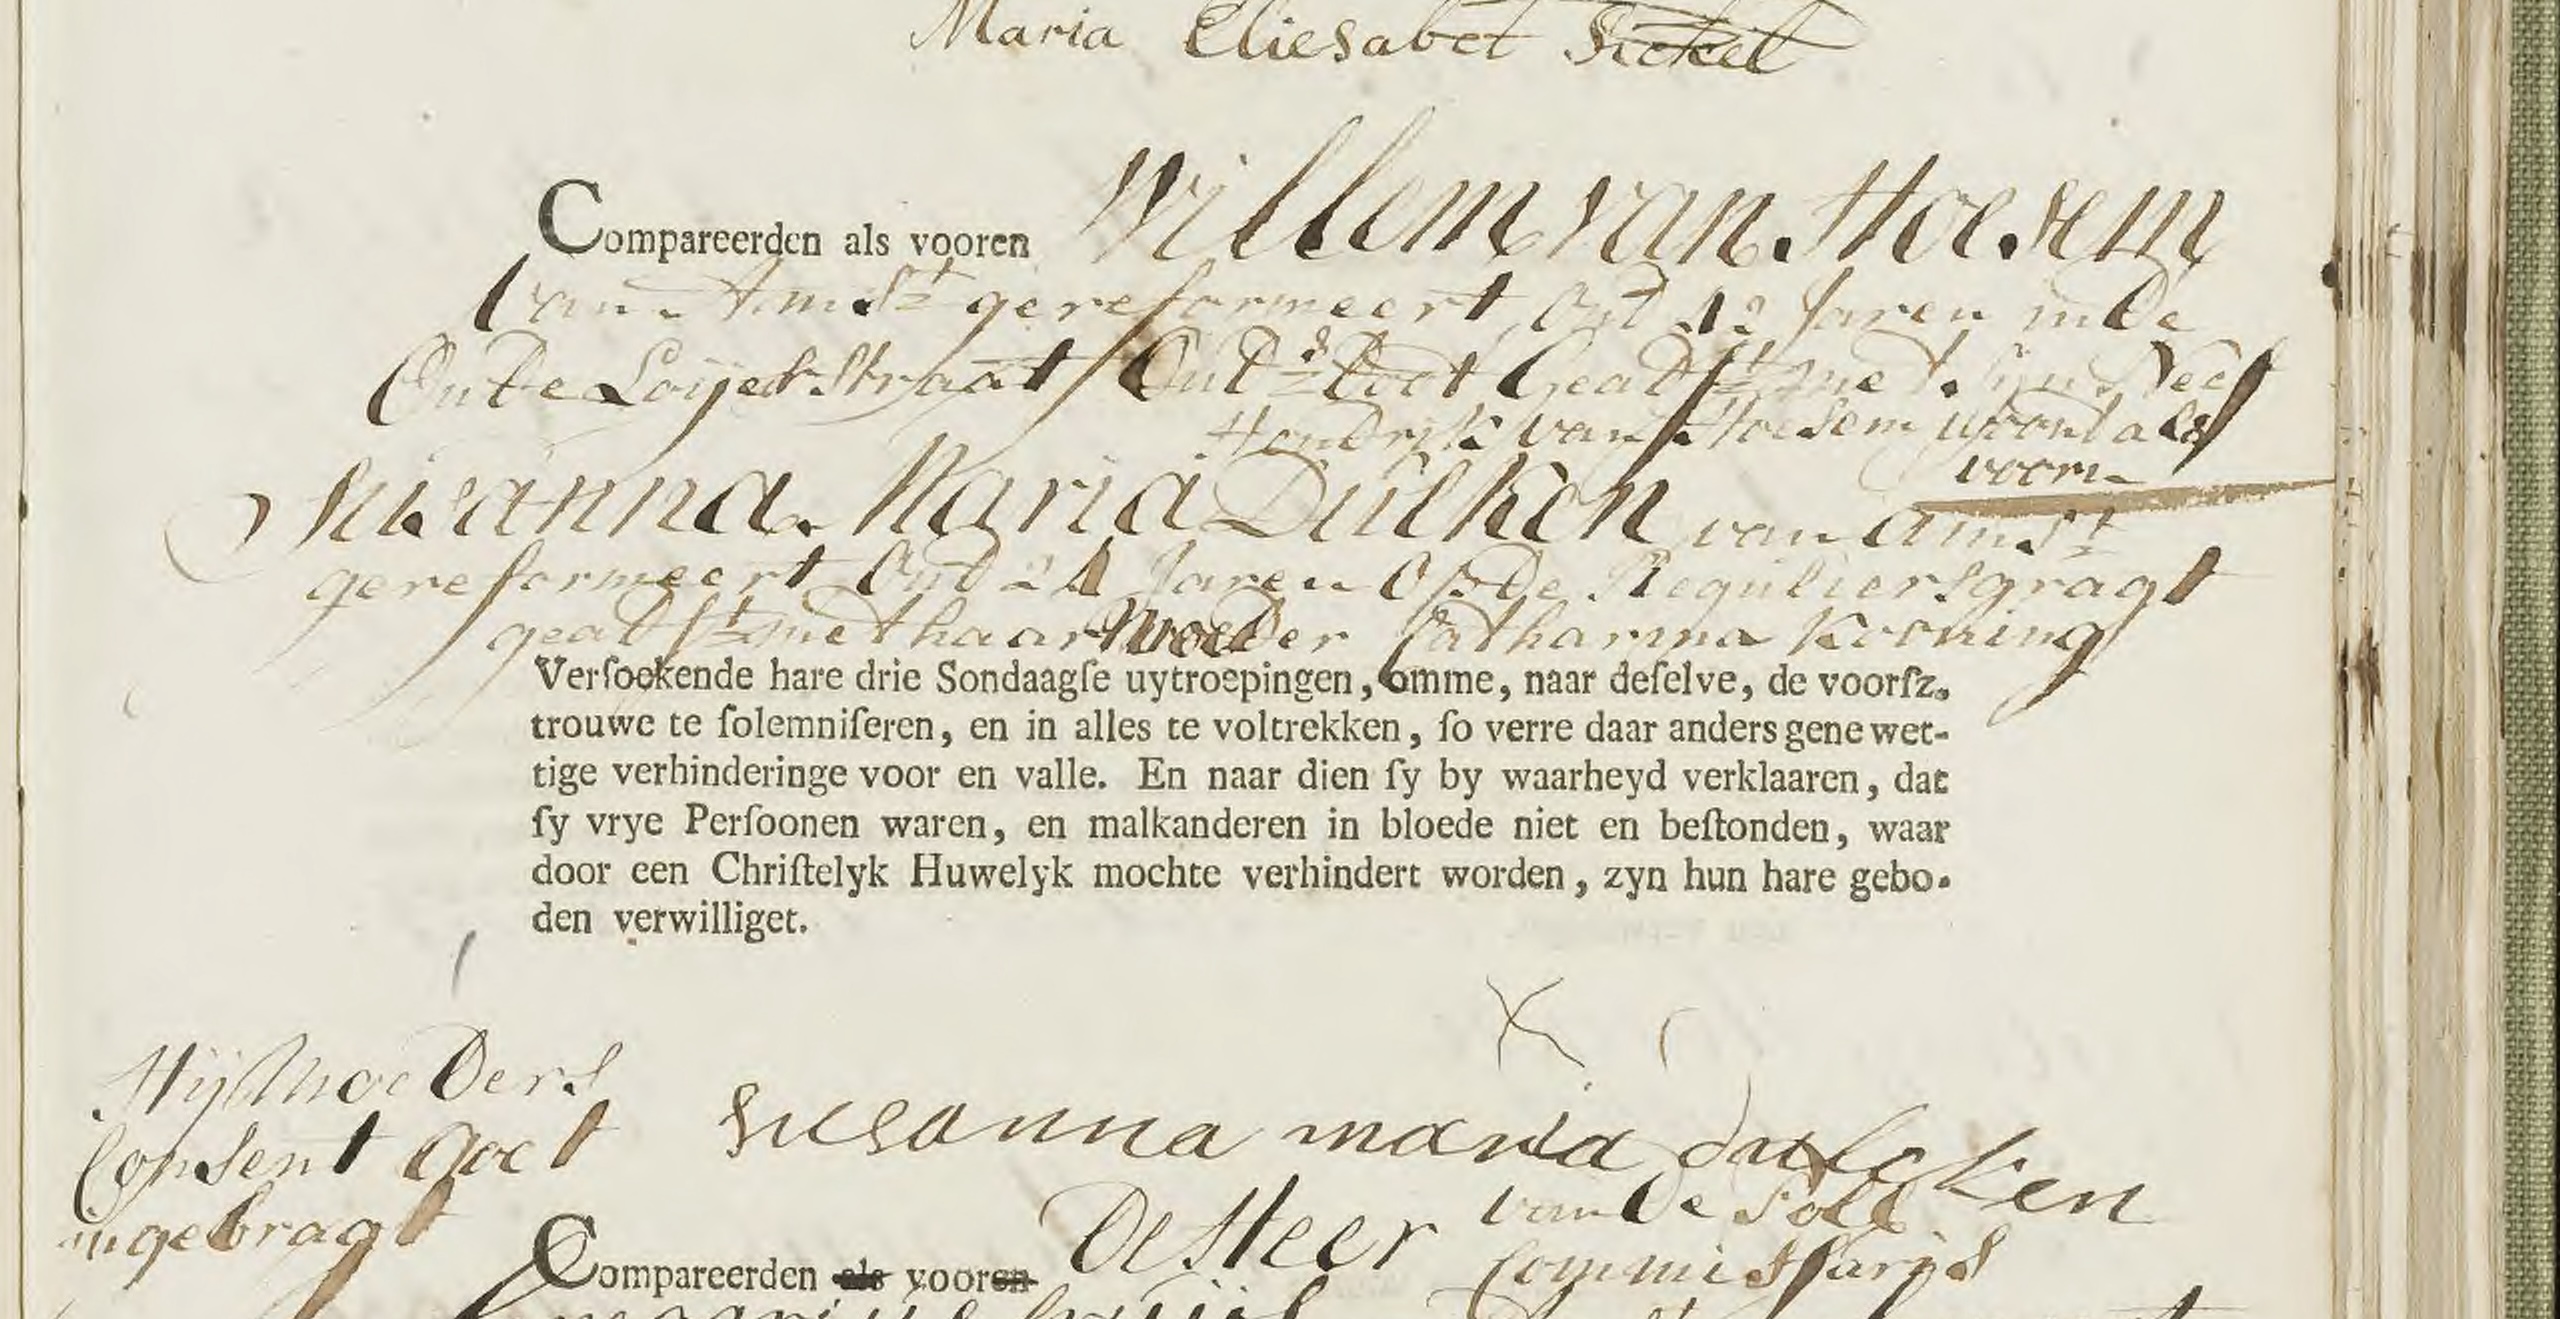 Maria Eliesabet Fickel
Compareerden als vooren Willem van Hoesem
van Amst gereformeert Out Jaren in de
Oude Loyerstraat Oud.s doot Geadst met sijn Neef
Hendrik van Hoesem woont als
voorn
Susanna Maria Dulken van Amst
gereformeert Oud 24 Jaren Op de Reguliersgragt
geadst met haar Moeder Catharina Kooning
Verſoekende hare drie Sondaagſe uytroepingen, omme, naar deſelve, de voorſz.
trouwe te ſolemniſeren, en in alles te voltrekken, ſo verre daar anders gene wet-
tige verhinderinge voor en valle. En naar dien ſy by waarheyd verklaaren, dat
ſy vrye Perſoonen waren, en malkanderen in bloede niet en beſtonden, waar
door een Chriſtelyk Huwelyk mochte verhindert worden, zyn hun hare gebo-
den verwilliget.
X
Hij Moeders
Consent goet
ingebragt
susanna maria dulcken
Compareerden als vooren De Heer van de Poll
Commissaris